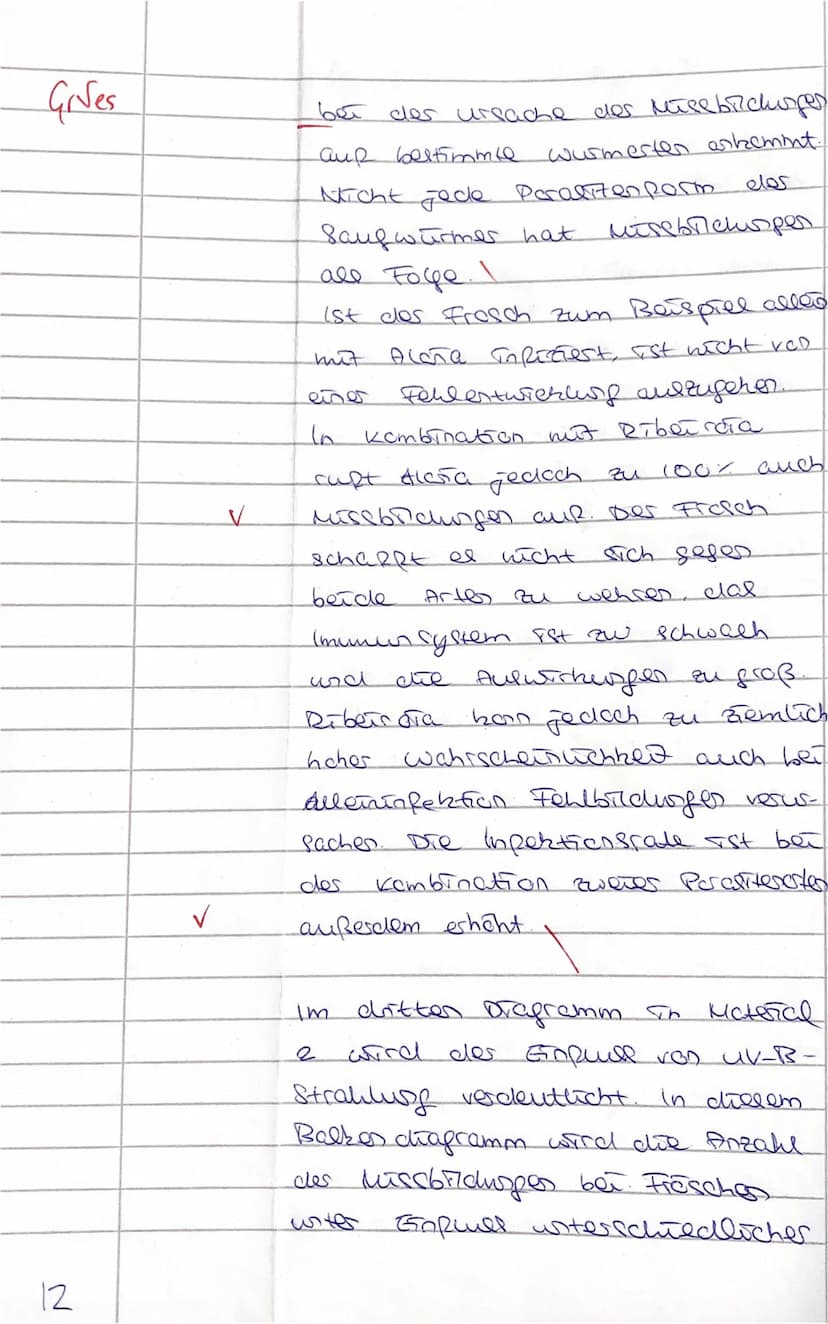 bei der Ursache der Missbildungen
auf bestimmte Wurmarten ankommt.
Nicht jede Parasitenform des
Saugwurmes hat Missbildungen
als Folge.
Ist der Frosch zum Beispiel allein
mit Alaria infiziert, ist nicht von
einer Fehlentwicklung auszugehen.
In Kombination mit Ribeiroia
ruft Alaria jedoch zu 100% auch
Missbildungen auf. Der Frosch
schafft es nicht sich gegen
beide Arten zu wehren, das
Immunsystem ist zu schwach
und die Auswirkungen zu groß.
Ribeiroia kann jedoch zu ziemlich
hoher Wahrscheinlichkeit auch bei
Alleininfektion Fehlbildungen verur-
sachen. Die Infektionsrate ist bei
der Kombination zweier Parasitenarten
außerdem erhöht.
Im dritten Diagramm in Material
2 wird der Einfluss von UV-B-
Strahlung verdeutlicht. In diesem
Balkendiagramm wird die Anzahl
der Missbildungen bei Fröschen
unter Einfluss unterschiedlicher
12